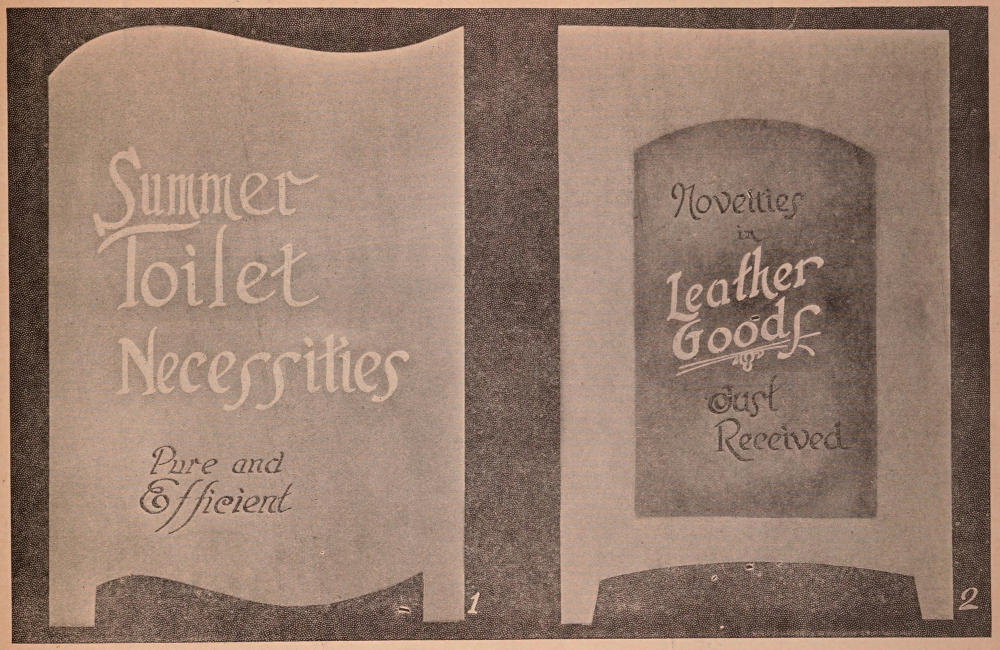 Summer
Toilet
Necessities
Pure and
Efficient
1
Novelties
in
Leather
Goods
Just
Received
2